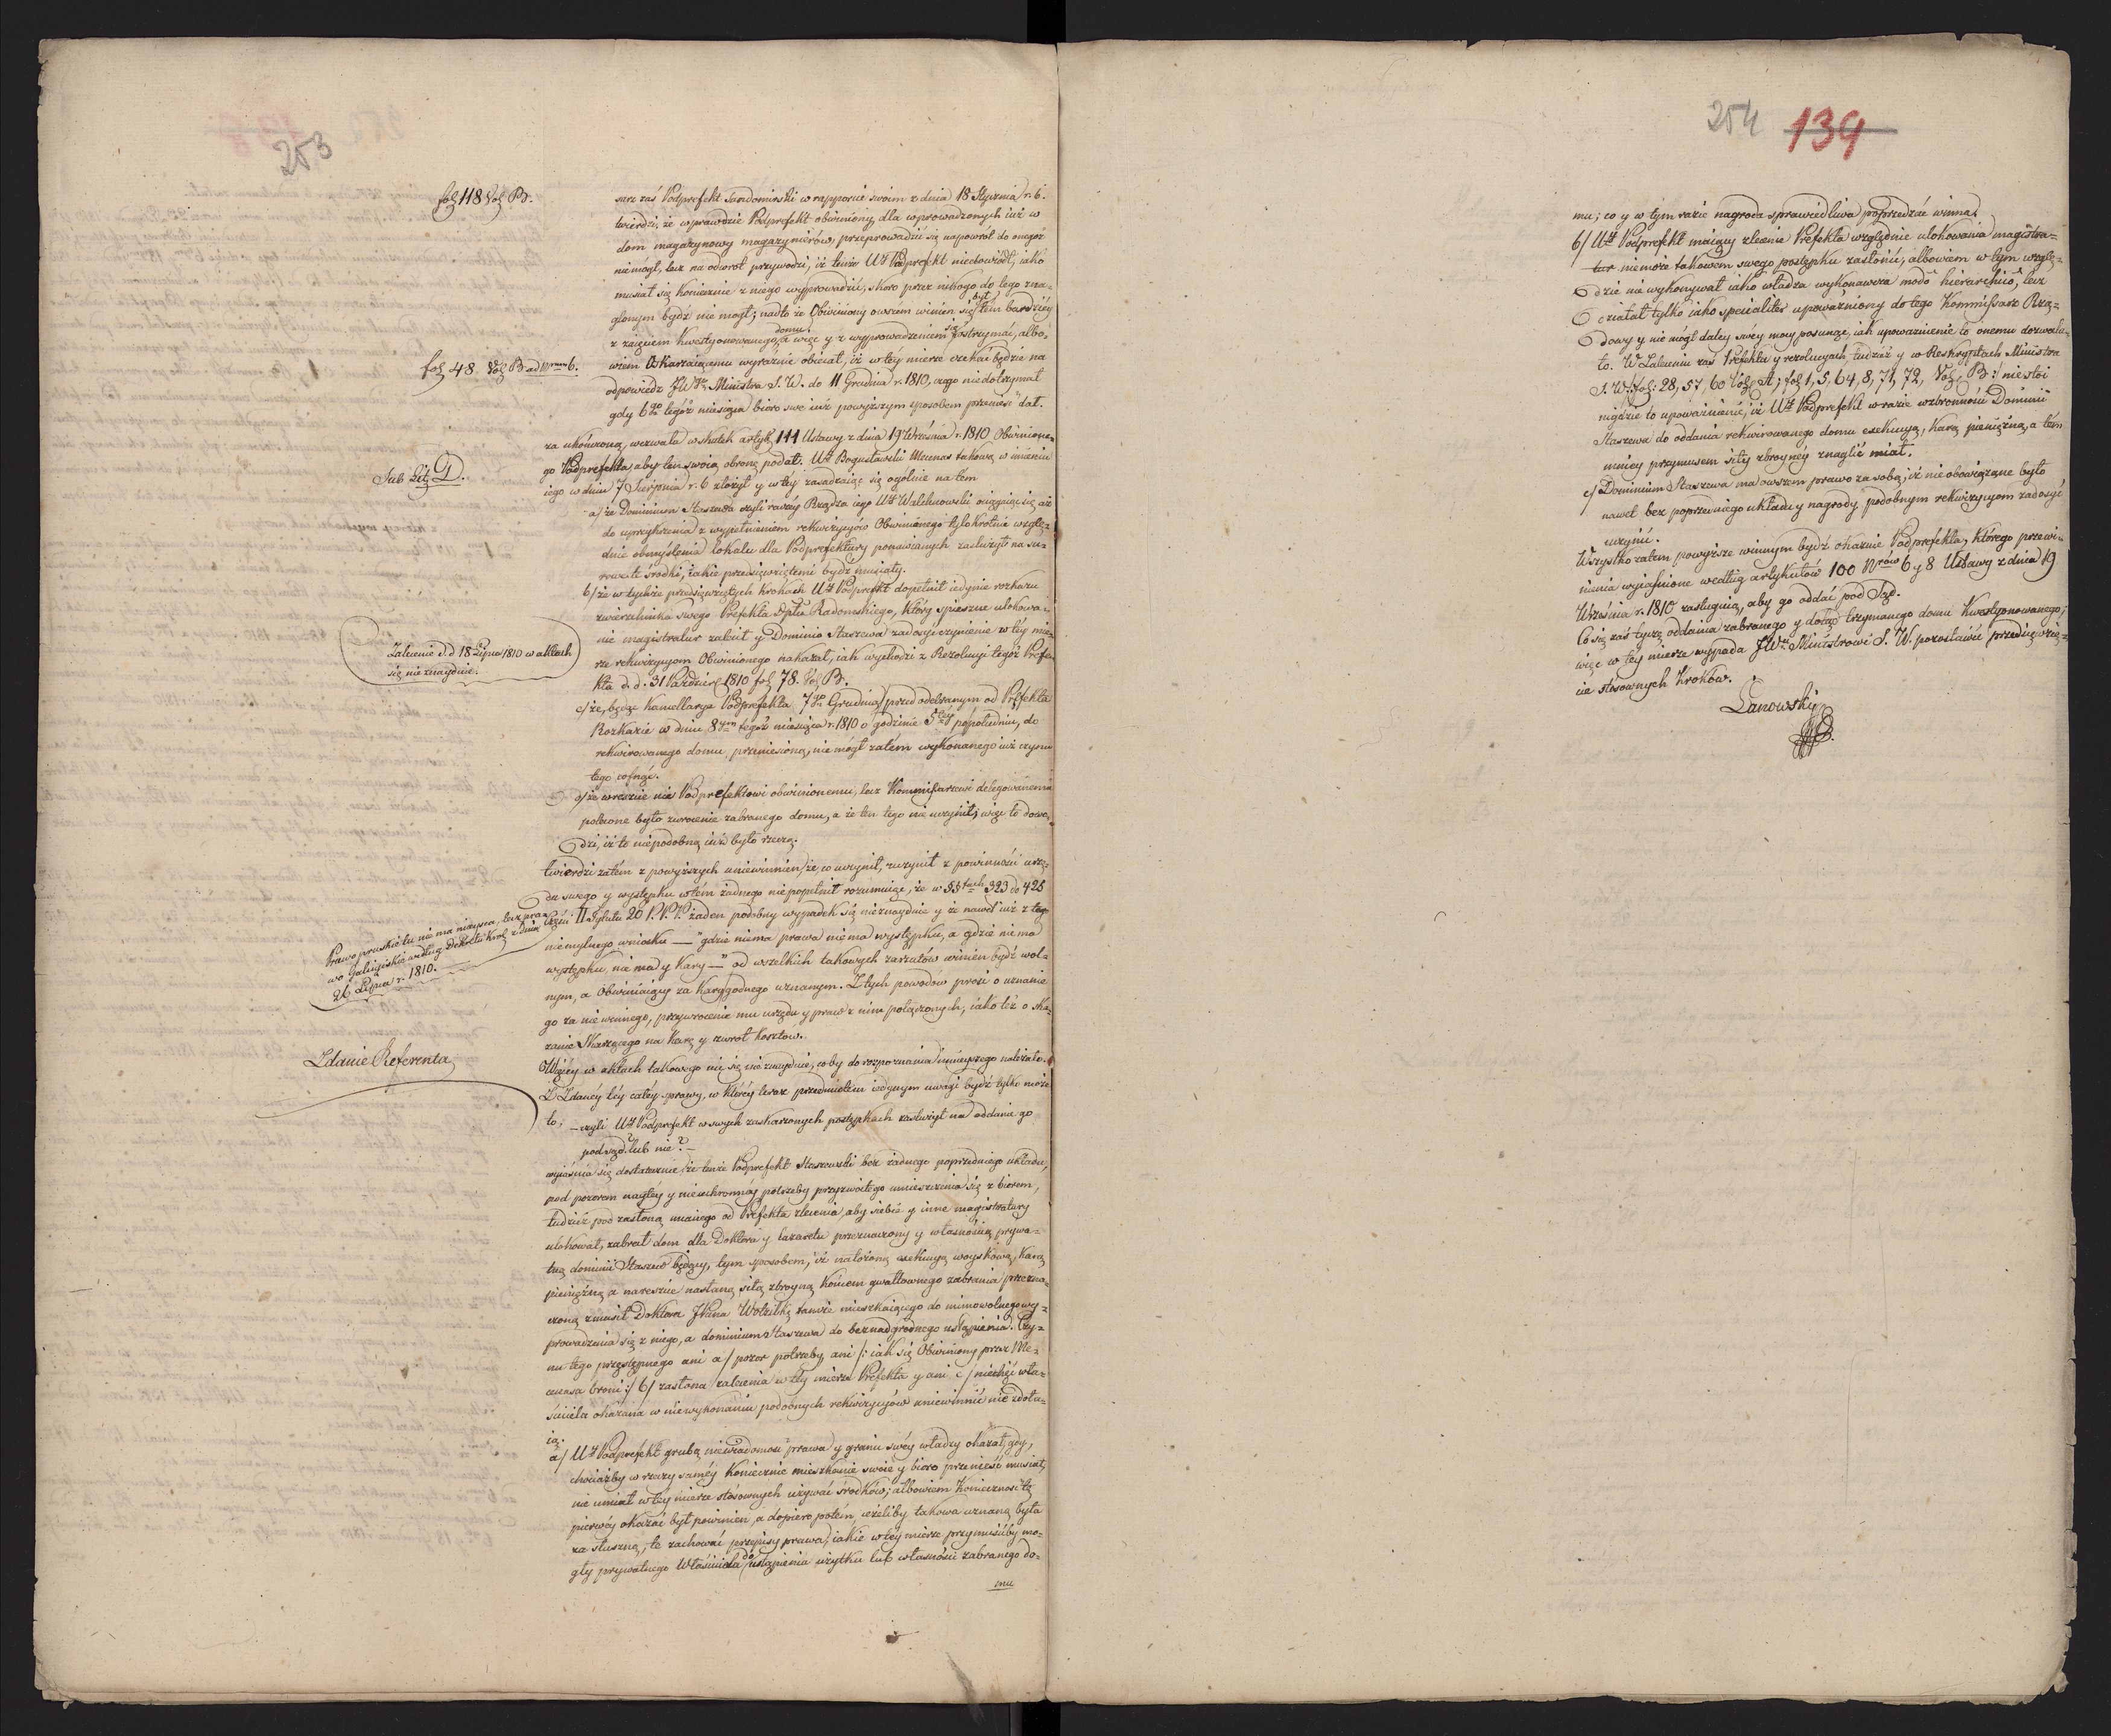 253
fol 118 Vol B.
sarz zaś Podprefekt Sandomirski w rapporcie swoim z dnia 18 Stycznia r. b.
twierdzi, że wprawdzie Podprefekt obwiniony dla wprowadzonych iuż w
dom magazynowy magazynierów, przeprowadzić się napowrót do onegoż
nie mógł, lecz na odwrót przywodzi, iż tenże Ur Podprefekt nieodowiódł, iako
musiał się koniecznie z niego wyprowadzić, skoro przez nikogo do tego zna-
glonym bydź nie mógł; nadto że Obwiniony owszem winien był się tém bardziéy
z zaięciem kwestyonowanego domu, a więc y z wyprowadzeniem się wstrzymać, albo-
fol 48. Vol B ad Nrum 6.
wiem Oskarżaiącemu wyraźnie obiecał, iż w téy mierze czekać będzie na
odpowiedz JWgo Ministra S. W. do 11 Grudnia r. 1810, czego nie dotrzymał
gdy 6go tegóż miesiąca bióro swe iuż powyższym sposobem przenieść dał.
za ukończoną, wezwała w skutek artykł 111 Ustawy z dnia 19 Września r. 1810 Obwinione-
go Podprefekta, aby ten swoią obronę podał. Ur Bogusławski Mecenas takową w imieniu
Sub Lit D.
iego w dniu 7 Sierpnia r. b złożył y w téy zasadzaiąc się ogólnie na tem
a/ że Dominium Staszewa czyli raczéy Rządca iego Ur Walchnowski ociągaiąc się aż
do uprzykrzenia z wypełnieniem rekwizycyów Obwinionego tylokrotnie wzglę-
dnie obmyślenia lokalu dla Podprefektury ponawianych zasłużyło na su-
rowsze środki, iakie przedsięwziętemi bydź musiały.
b/ że w tychże przedsięwziętych krokach Ur Podprefekt dopełnił iedynie rozkazu
zwierzchnika swego Prefekta Dptu Radomskiego, który spieszne ulokowa-
nie magistratur zalecił y Dominio Staszewa zadosyć uczynienie w téy mie-
Zalecenie d. d 18 Lipca 1810 w aktach
się nie znayduie.
rze rekwizycyom Obwinionego nakazał, iak wychodzi z Rezolucyi tegóż Prefe-
kta d. d. 31 Paździer 1810 fol 78. Vol B.
c/ że, będąc kancellarya Podprefekta 7go Grudnia przed odebranym od Prefekta
Rozkazie w dniu 8ym tegóż miesiąca r. 1810 o godzinie 5tey popołudniu, do
rekwirowanego domu przeniesioną, nie mógł zatém wykonanego iuż czynu
tego cofnąć.
d/ że wreszcie nie Podprefektowi obwinionemu, lecz Kommissarzowi delegowanemu
polecone było zwrócenie zabranego domu, a że ten tego nie uczynił, więc to dowo-
dzi, iż to niepodobną iuż było rzeczą.
twierdzi zatém z powyższych uniewinnień, że, co uczynił, uczynił z powinności urzę-
du swego y występku w tém żadnego niepopełnił rozumuiąc, że w §§tach 323 do 428
Części II Tytułu 20 P. P. P. żaden podobny wypadek się nieznayduie y że nawet iuż z tego
Prawo pruskie tu nie ma mieysca, lecz pra-
wo Galicyiskie według Dekretu Król. z dnia
26 Lipca r. 1810.
niemylnego wniosku — "gdzie niema prawa niema występku, a gdzie niema
występku, nie ma y kary —" od wszelkich takowych zarzutów winien bydź wol-
nym, a Obwiniaiący za karygodnego uznanym. Z tych powodów prosi o uznanie
go za niewinnego, przywrócenie mu urzędu y praw z nim połączonych, iako też o ska-
zanie Skarżącego na karę y zwrot kosztów.
Zdanie Referenta
Więcéy w aktach takowego nic się nie znayduie, coby do rozpoznania ninieyszego należało.
Z Zdanéy téy całéy sprawy, w któréy teraz przedmiotem iedynym uwagi bydź tylko może
to; — czyli Ur Podprefekt w swych zaskarżonych postępkach zasłużył na oddanie go
pod sąd? lub nie? —
wyiaśnia się dostatecznie, że tenże Podprefekt Staszowski bez żadnego poprzedniego układu,
pod pozorem nagłéy y nieuchronnéy potrzeby przyzwoitego umieszczenia się z biorem,
tudzież pod zasłoną mianego od Prefekta zlecenia, aby siebie y inne magistratury
ulokował, zabrał dom dla Doktora y lazaretu przeznaczony y własnością prywa-
tną dominii Staszewa będący, tym sposobem, iż nałożoną exekucyą woyskową, karą
pieniężną a nareszcie nasłaną siłą zbroyną końcem gwałtownego zabrania przezna-
czoną zmusił Doktora JPana Woleitkę tamże mieszkaiącego do mimowolnego wy-
prowadzenia się z niego, a dominium Staszewa do beznadgrodnego ustąpienia. Czy-
nu tego przestępnego ani a/ pozor potrzeby, ani /: iak się Obwiniony przez Me-
cenasa broni :/ b/ zasłona zalecenia w téy mierze Prefekta y ani c/ niechęć wła-
ściciela okazana w niewykonaniu podobnych rekwizycyów uniewinnić nie zdoła-
ią.
a/ Ur Podprefekt grubą niewiadomość prawa y granic swéy władzy okazał, gdy,
chociażby w rzeczy saméy koniecznie mieszkanie swoie y bioro przenieść musiał,
nie umiał w téy mierze stósownych używać środków; albowiem konieczność tę
pierwéy okazać był powinien, a dopiero potém ieżeliby takowa uznaną była
za słuszną, te zachować przepisy prawa, iakie w téy mierze przymusićby mo-
gły prywatnego Właściciela do ustąpienia użytku lub własności zabranego do-
mu
254 139
mu; co y w tym razie nagroda sprawiedliwa poprzedzać winna.
b/ Ur Podprefekt maiący zlecenie Prefekta względnie ulokowania magistra-
tur nie może takowem swego postępku zasłonić, albowiem w tym wzglę-
dzie nie wykonywał iako władza wykonawcza modo hierarchico, lecz
działał tylko iako specialiter upoważniony do tego Kommissarz Rzą-
dowy y nie mógł daley swéy mocy posunąć, iak upoważnienie to onemu dozwala-
ło. W Zaleceniu zaś Prefekta y rezolucyach tudzież y w Reskryptach Ministra
S. W. fol: 28, 57, 60 Vol. A; fol 1, 5, 64, 8, 71, 72, Vol. B: nie stoi
nigdzie to upoważnienie, iż Ur Podprefekt w razie wzbronności Dominii
Staszewa do oddania rekwirowanego domu exekucyą, karą pieniężną, a tém
mniey przymusem siły zbroyney znaglić miał.
c/ Dominium Staszewa ma owszem prawo za sobą, iż nie obowiązane było
nawet bez poprzedniego układu y nagrody podobnym rekwizycyom zadosyć
uczynić.
Wszystko zatem powyższe winnym bydź okazuie Podprefekta, którego przewi-
nienia wyiaśnione według artykułów 100 Nrów 6 y 8 Ustawy z dnia 19
Września r. 1810 zasługuią, aby go oddać pod Sąd.
Co się zaś tycze oddania zabranego y dotąd trzymanego domu kwestyonowanego;
więc w téy mierze wypada JWu Ministrowi S. W. pozostawić przedsięwzię-
cie stósownych kroków.
Łanowski